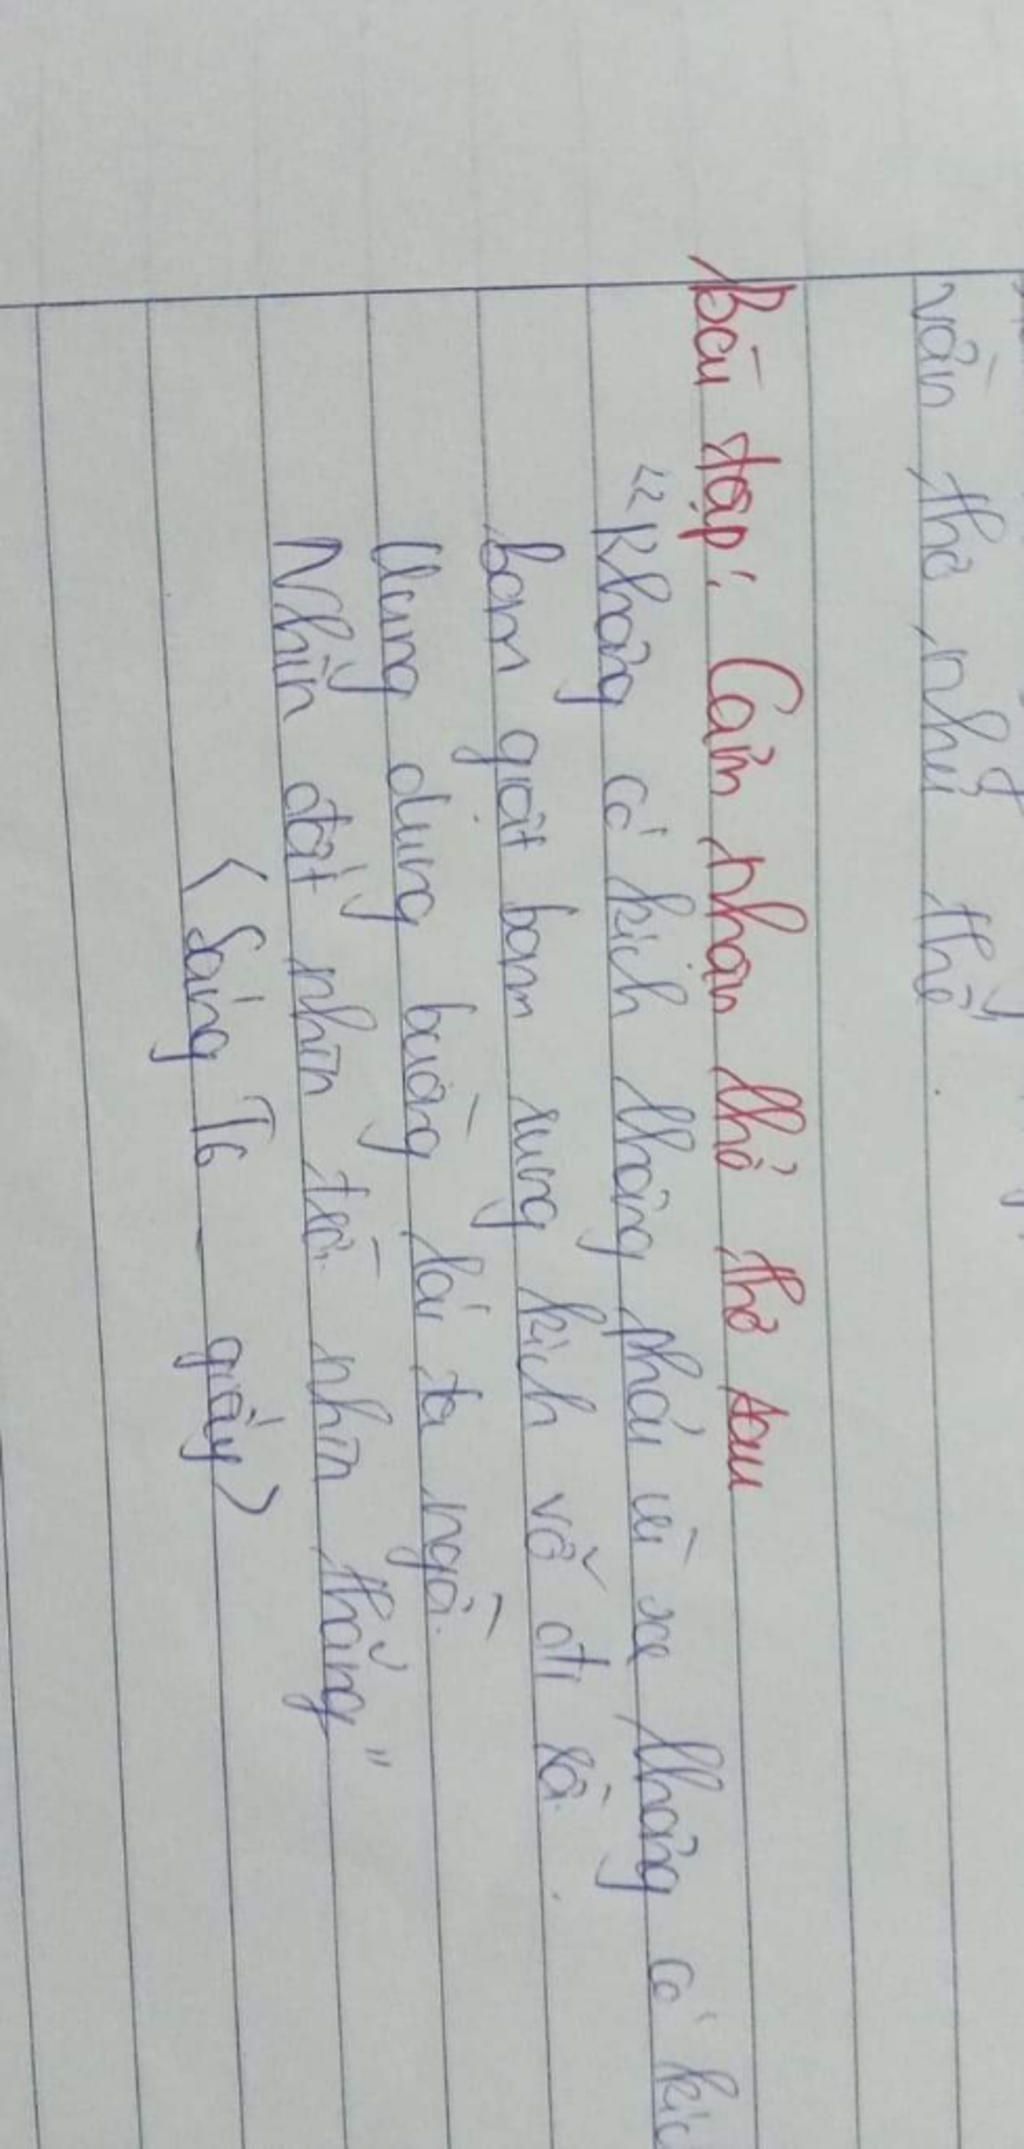 vần thơ như thế.
Bài tập: Cảm nhận khổ thơ sau
"Không có kính không phải vì xe không có kín
Bom giật bom rung kính vỡ đi rồi.
Ung dung buồng lái ta ngồi
Nhìn đất nhìn trời nhìn thẳng"
(Sáng T6 giấy)